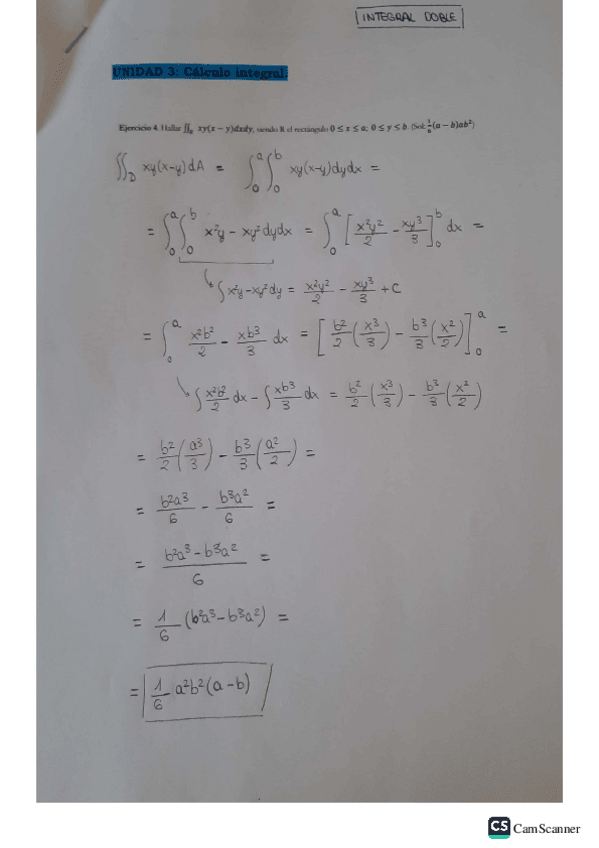 INTEGRAL DOBLE
UNIDAD 3: Cálculo integral.
Ejercicio 4. Hallar ∬_R xy(x − y)dxdy, siendo R el rectángulo 0 ≤ x ≤ a; 0 ≤ y ≤ b. (Sol: 1/6(a − b)ab²)
∬_D xy(x-y)dA = ∫_0^a ∫_0^b xy(x-y)dydx =
= ∫_0^a ∫_0^b x²y - xy² dydx = ∫_0^a [x²y²/2 - xy³/3]_0^b dx =
∫x²y-xy²dy = x²y²/2 - xy³/3 + C
= ∫_0^a x²b²/2 - xb³/3 dx = [b²/2 (x³/3) - b³/3 (x²/2)]_0^a =
∫x²b²/2 dx - ∫xb³/3 dx = b²/2 (x³/3) - b³/3 (x²/2)
= b²/2 (a³/3) - b³/3 (a²/2) =
= b²a³/6 - b³a²/6 =
= b²a³-b³a²/6 =
= 1/6 (b²a³-b³a²) =
= 1/6 a²b²(a-b)
CS CamScanner